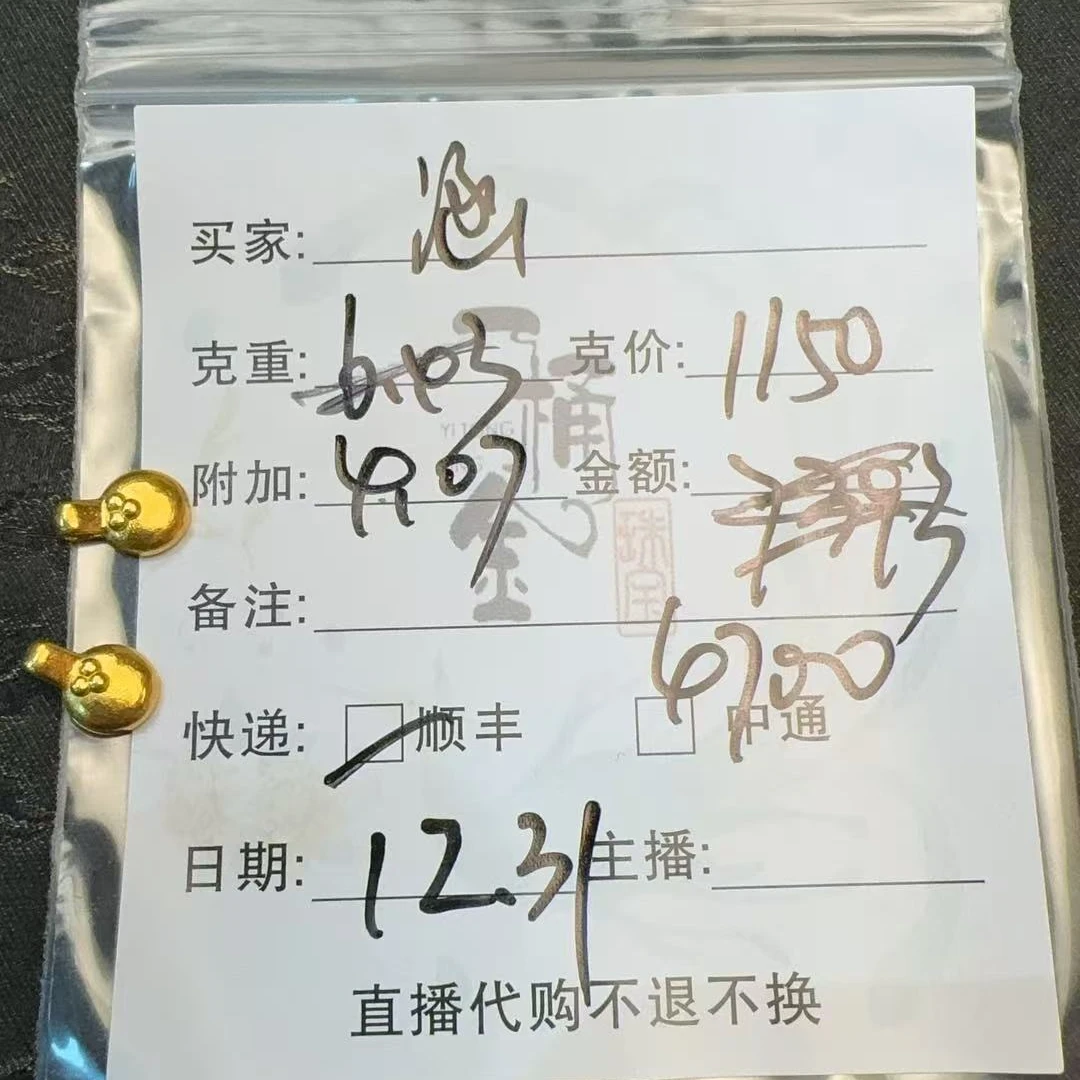 买家: 涵
克重: 6.03 克价: 1150
附加: 金额:
备注:
6700
快递: 顺丰 中通
日期: 12.31 主播:
直播代购不退不换
一桶金
YITONG
珠宝